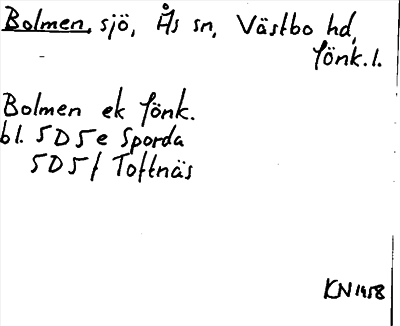 Bolmen, sjö, Ås sn, Västbo hd,
Jönk.l.
Bolmen ek Jönk.
bl. 5D5e Sporda
5D5f Toftnäs
KN 1958